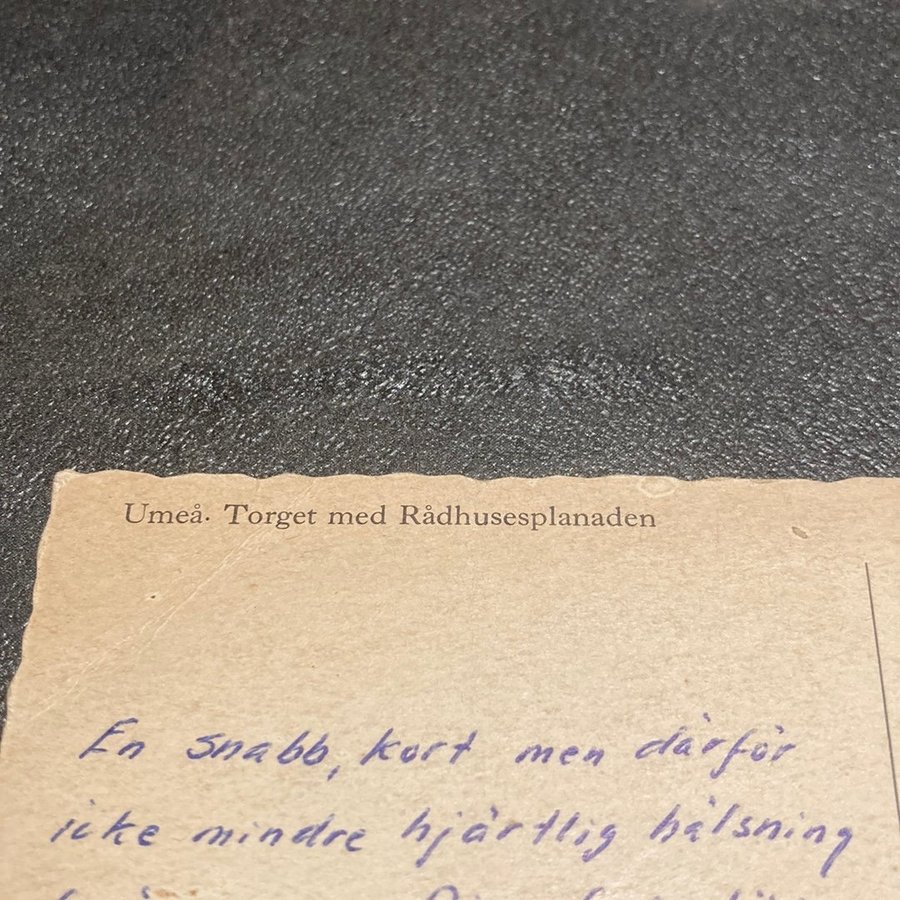 Umeå. Torget med Rådhusesplanaden
En snabb, kort men därför
icke mindre hjärtlig hälsning